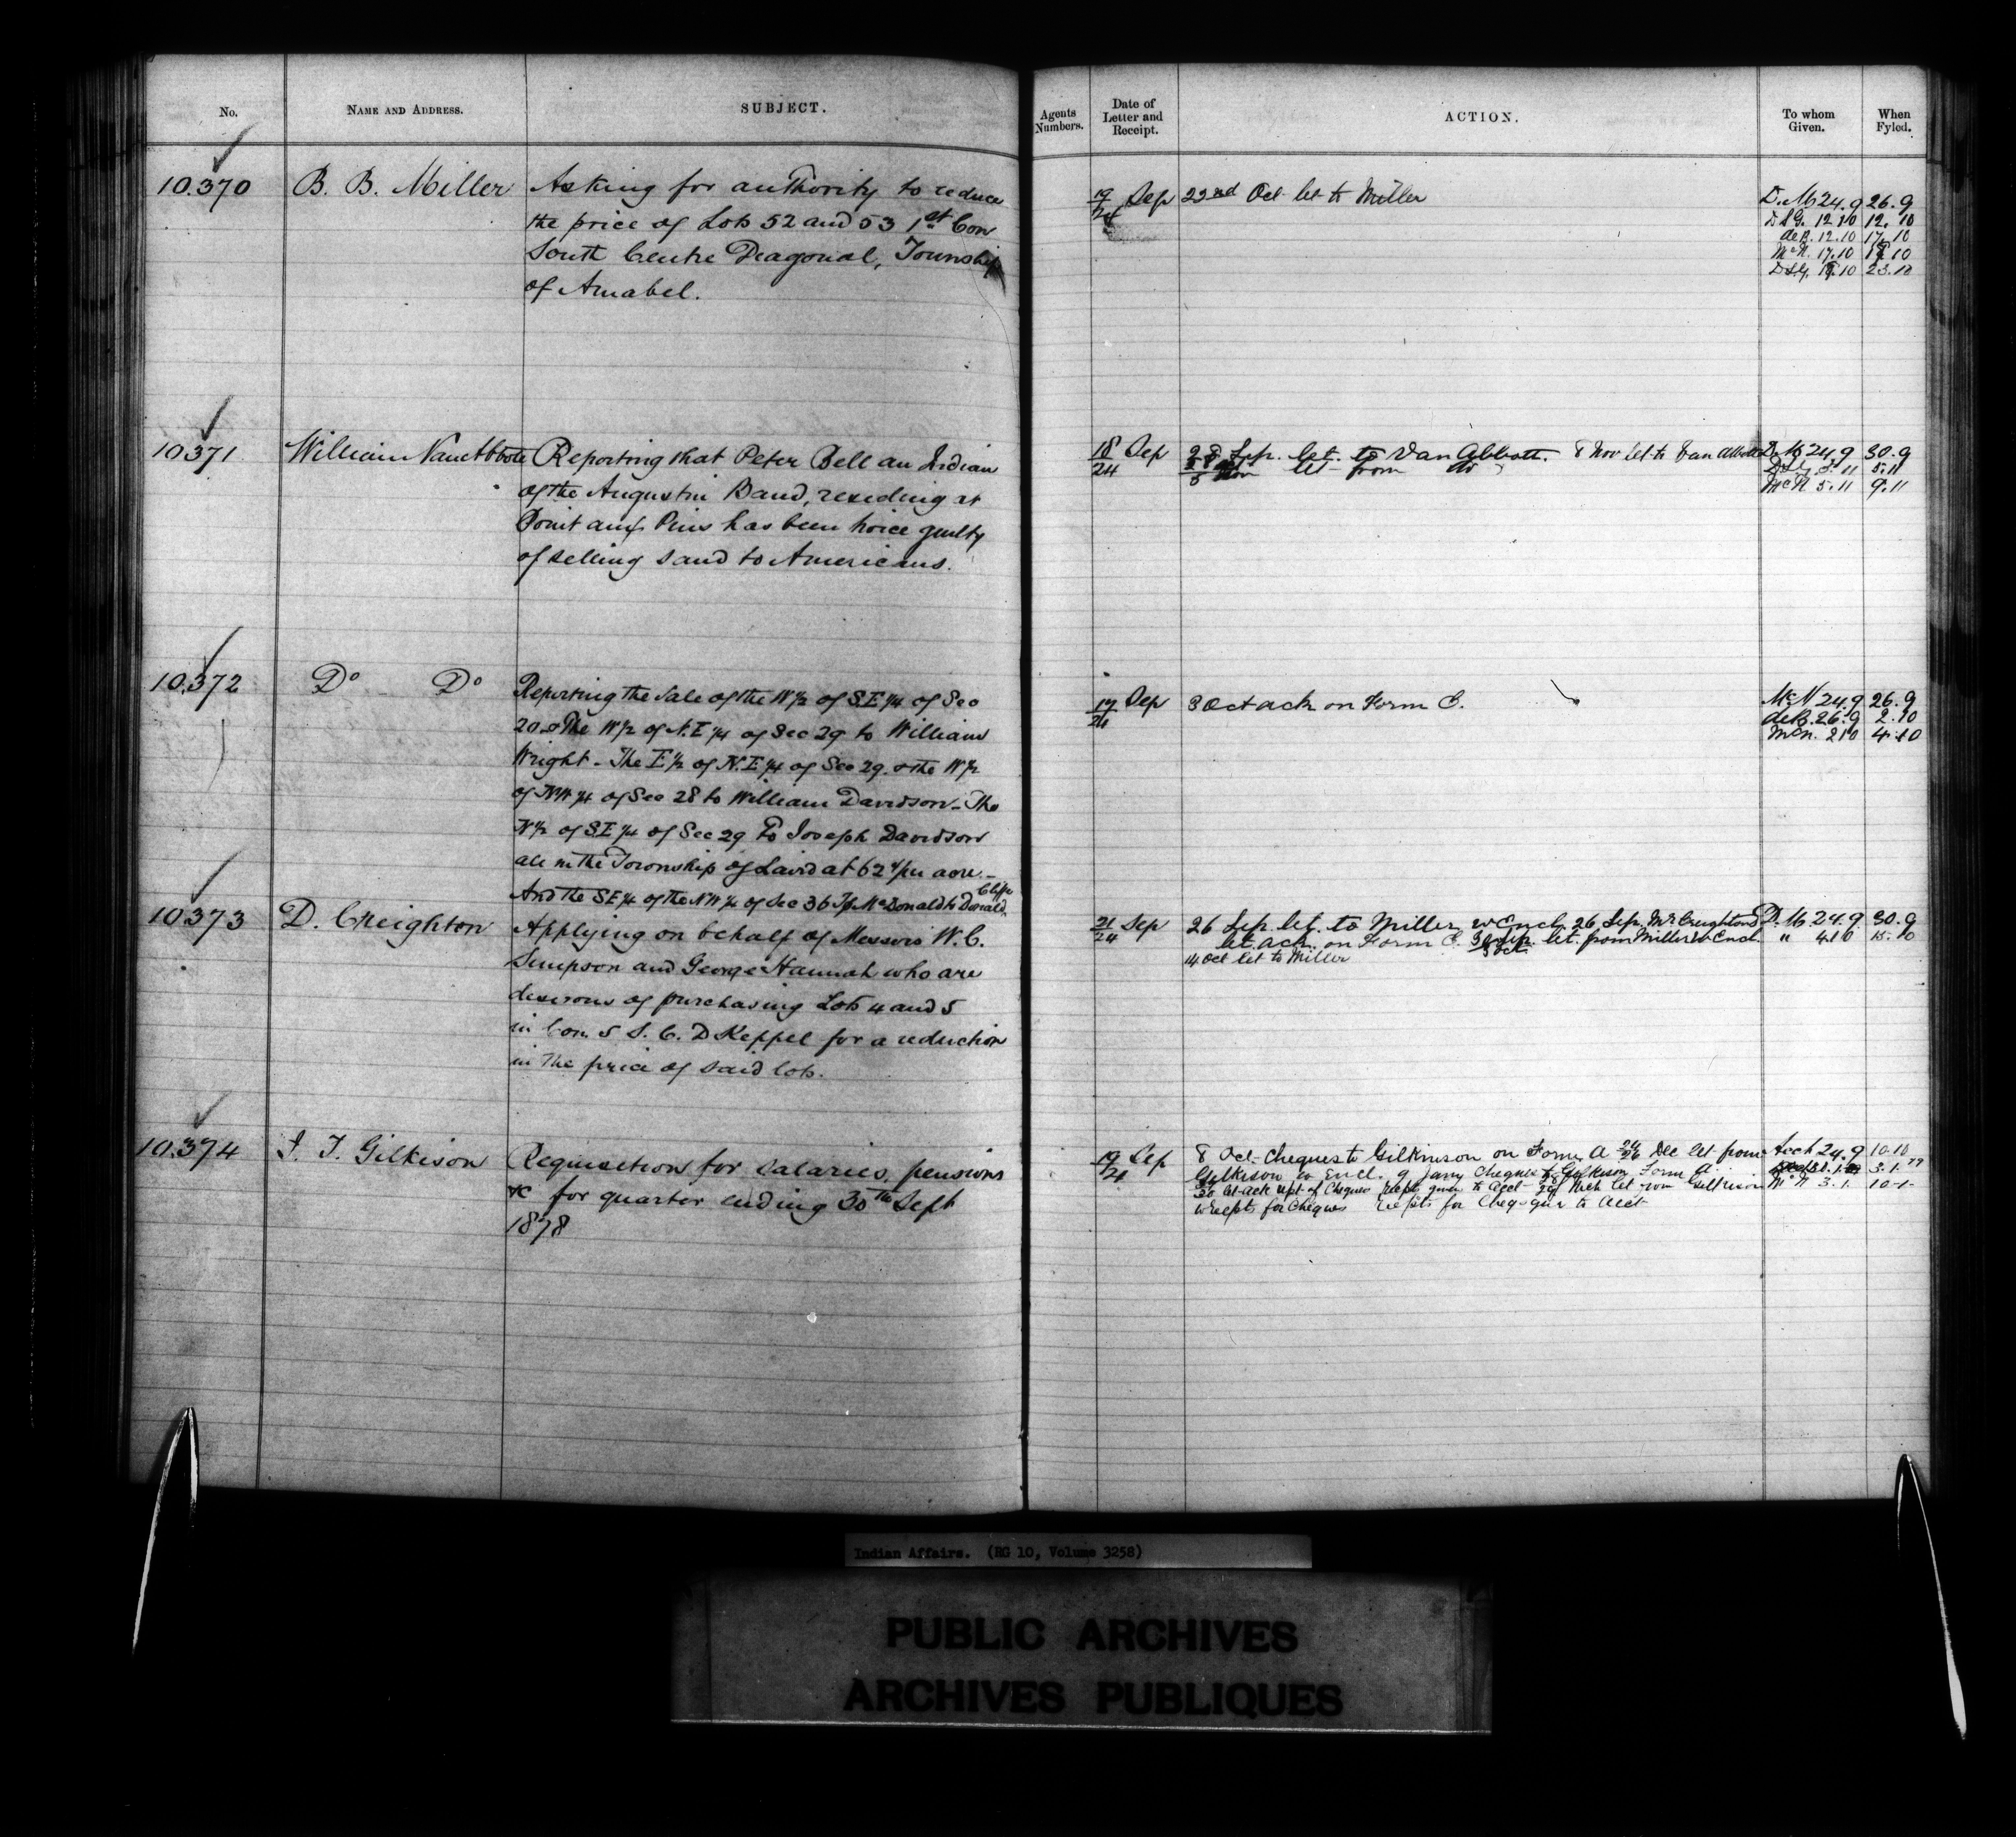 No. NAME AND ADDRESS. SUBJECT.
10.370 B. B. Miller Asking for authority to reduce
the price of Lots 52 and 53 1st Con
South Centre Diagonal, Township
of Amabel.
10371 William VanAbbote Reporting that Peter Bell an Indian
of the Augustin Band, residing at
Point aux Pins has been twice guilty
of selling sand to Americans.
10.372 Do Do Reporting the sale of the W½ of S.E¼ of Sec
20 & The W½ of N.E¼ of Sec 29 to William
Wright - The E½ of N.E¼ of Sec 29. & the W½
of NW¼ of Sec 28 to William Davidson - The
N½ of S.E¼ of Sec 29 To Joseph Davidson
all in the Township of Laird at 62 per acre -
And the SE¼ of the NW¼ of Sec 36 Tp McDonald to Donald
10373 D. Creighton Applying on behalf of Messrs W. C.
Simpson and George Hannah who are
desirous of purchasing Lots 4 and 5
in Con. 5 S. C. D Keppel for a reduction
in the price of said lots.
10.374 J. T. Gilkison Requisition for salaries, pensions
&c for quarter ending 30th Sept
1878
Agents Numbers. Date of Letter and Receipt. ACTION. To whom Given. When Fyled.
19/24 Sep 22nd Oct let to Miller D. M 24.9 26.9
12.10 12.10
12.10 17.10
McN. 17.10
23.10
18/24 Sep 28 Sep. let. to Van Abbott. 8 Nov let to Van Abbott D. M 24.9 30.9
let from do 5.11
McN 5.11 9.11
17/24 Sep 3 Oct ack on Form C. McN 24.9 26.9
deB. 26.9 2.10
McN. 2 10 4.10
21/24 Sep 26 Sep. let. to Miller w Encl. 26 Sep. Mr Creighton's D. M 24.9. 30.9
let. ack. on Form C. let. from Miller w Encl. " 4.10 15.10
14 Oct let to Miller
19/24 Sep 8 Oct. Cheques to Gilkinson on Form A 24/26 Dec let from Acct 24.9 10.10
Gilkison w Encl. 9 Jany Cheques to Gilkison Form A 3.1.79
let ack rept of Cheques Rcpts given to Acct Mch let from Gilkison McN 3.1. 10.1.
w Recpts for Cheques Recpts for Cheq. giv to Acct
Indian Affairs. (RG 10, Volume 3258)
PUBLIC ARCHIVES
ARCHIVES PUBLIQUES